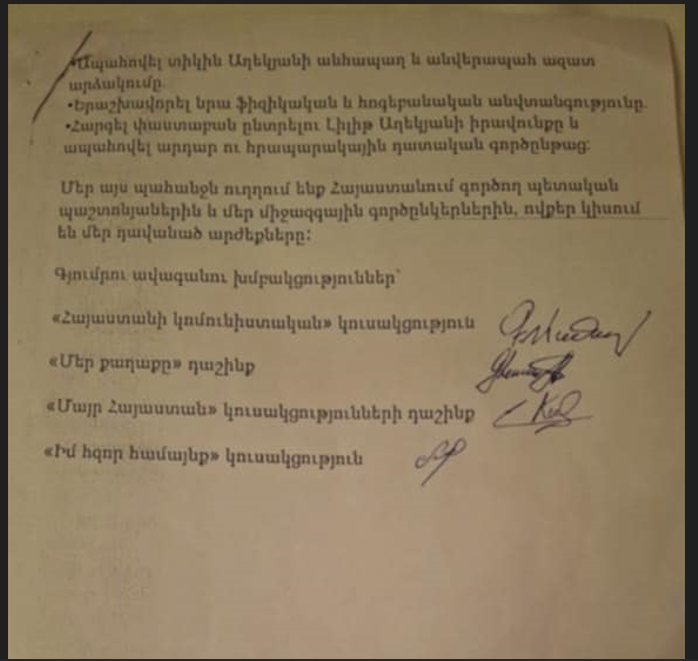 •Ապահովել տիկին Աղեկյանի անհապաղ և անվերապահ ազատ
արձակումը.
•Երաշխավորել նրա ֆիզիկական և հոգեբանական անվտանգությունը.
•Հարգել փաստաբան ընտրելու Լիլիթ Աղեկյանի իրավունքը և
ապահովել արդար ու հրապարակային դատական գործընթաց:
Մեր այս պահանջն ուղղում ենք Հայաստանում գործող պետական
պաշտոնյաներին և մեր միջազգային գործընկերներին, ովքեր կիսում
են մեր դավանած արժեքները:
Գյումրու ավագանու խմբակցություններ՝
«Հայաստանի կոմունիստական» կուսակցություն
«Մեր քաղաքը» դաշինք
«Մայր Հայաստան» կուսակցությունների դաշինք
«Իմ հզոր համայնք» կուսակցություն